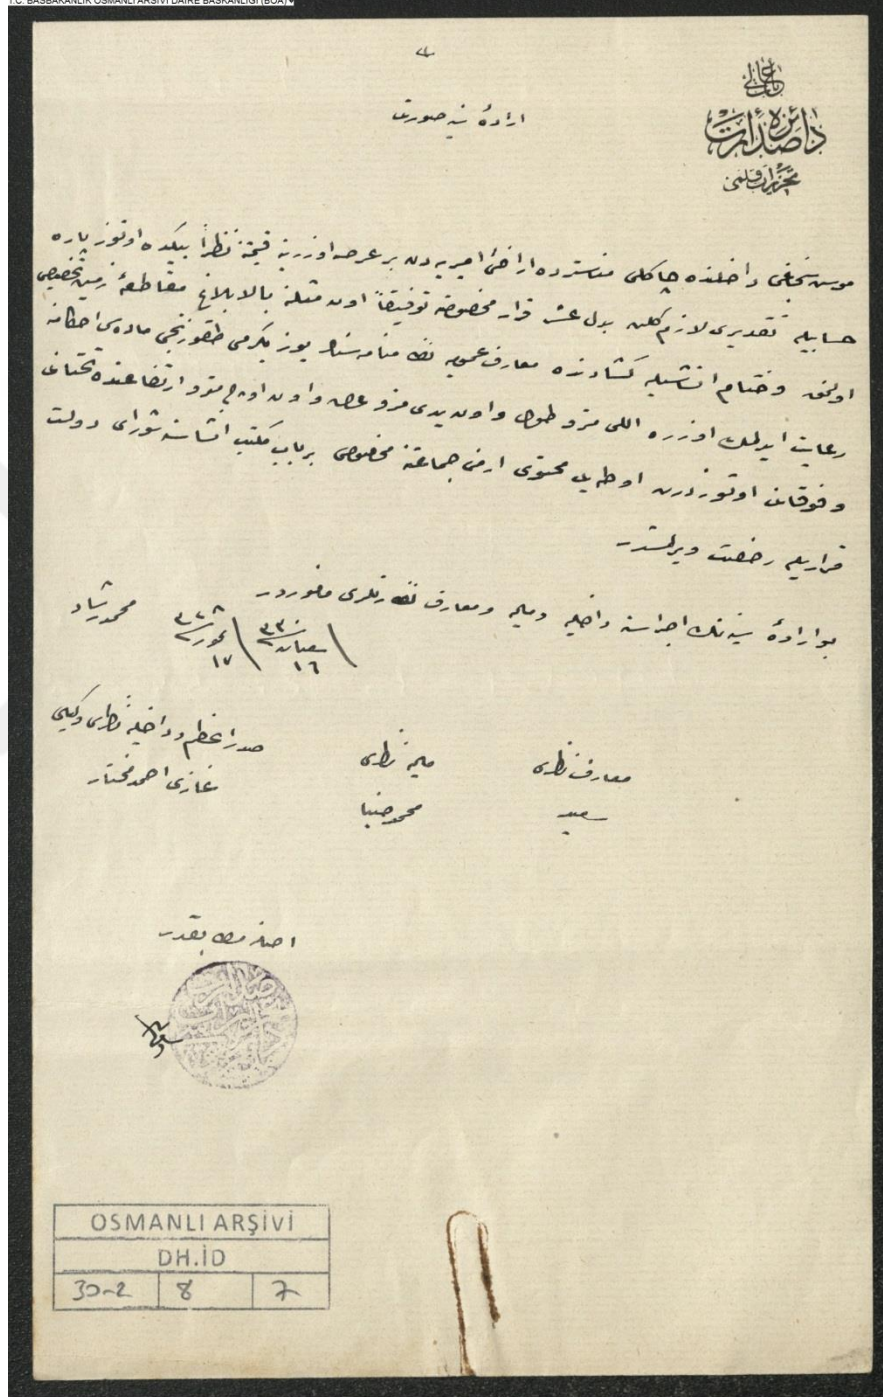 T.C. BAŞBAKANLIK OSMANLI ARŞİVİ DAİRE BAŞKANLIĞI (BOA)
باب عالی
دائرۀ صدارت
تحریرات قلمی
ارادۀ سنیه صورتی
موش سنجاغی داخلنده چاکلی مناستر ده اراضئ امیریه دن بر عرصه اوزرینه قیمتنه نظراً بیكده اوتوز پاره
حسابیله تقدیری لازم کلن بدل عشر قرار مخصوصنه توفیقاً اون مثلنه بالابلاغ مقاطعۀ زمین تخصیص
اولنمق وختام انشاسیله کشادنده معارف عمومیه نظامنامه سنك یوز یکرمی طقوزنجی ماده سی احکامنه
رعایت ایدلمك اوزره اللی مترو طول واون یدی مترو عرض واون اوچ مترو ارتفاعنده تحتانی
وفوقانی اوتوز درت اوطه یی محتوی ارمنی جماعتنه مخصوص بر باب مکتب انشاسنه شورای دولت
قراریله رخصت ویرلمشدر
بو ارادۀ سنیه نك اجراسنه داخلیه ومالیه ومعارف نظارتلری مأموردر
١٦ شعبان ٣٣٠ / ١٧ تموز ٣٢٨
محمد رشاد
صدر اعظم و داخلیه ناظری وکیلی
غازی احمد مختار
مالیه ناظری
محمد ضیا
معارف ناظری
سعید
اصلنه مطابقدر
OSMANLI ARŞİVİ
DH.İD
30-2 8 7